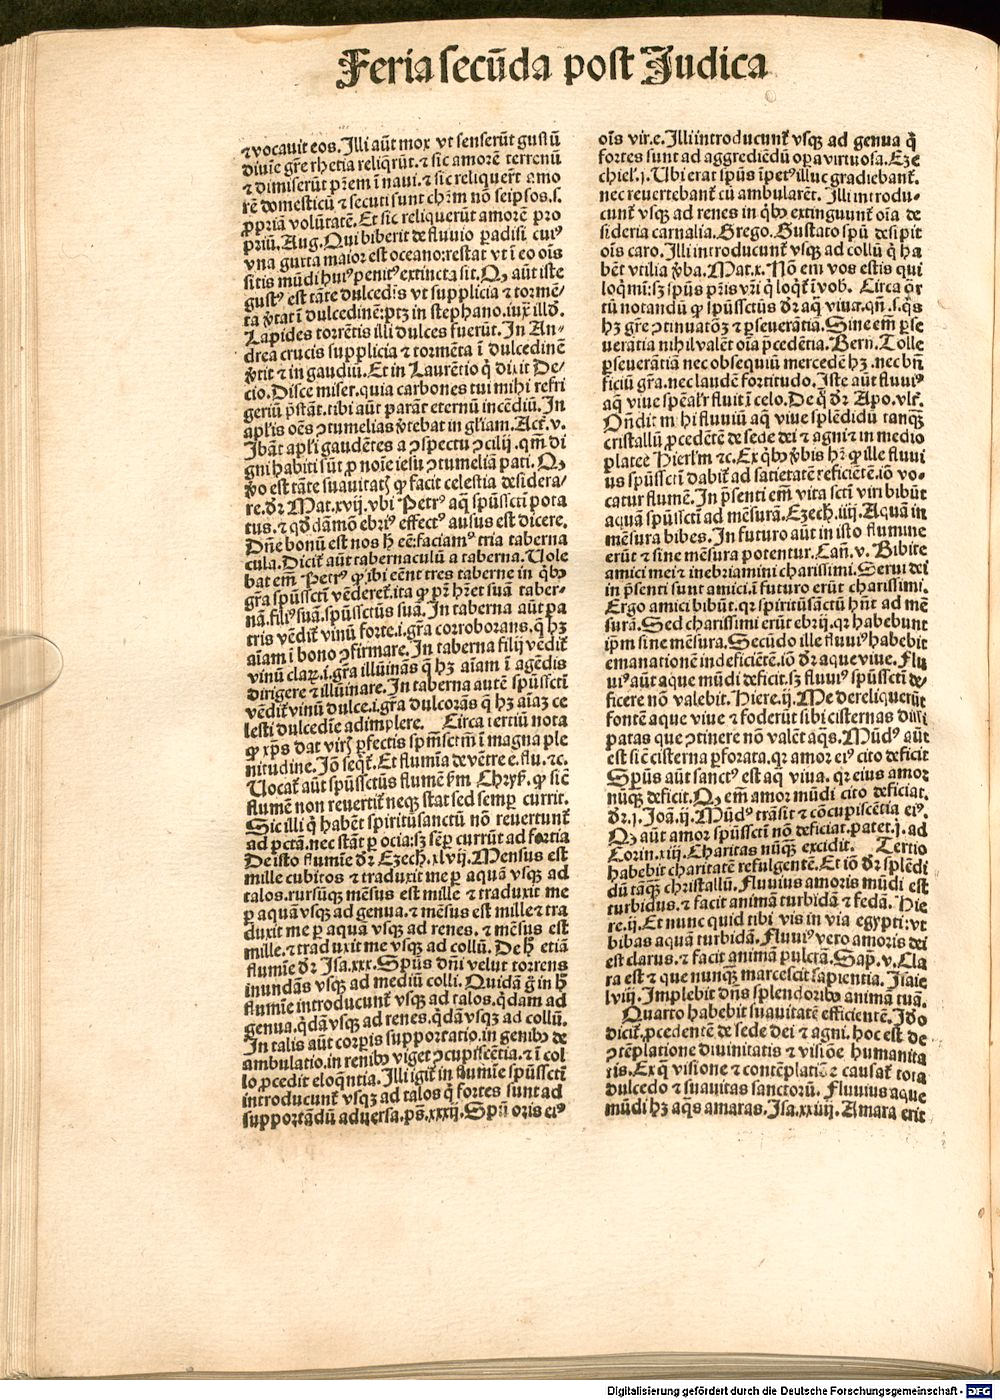 Feria secūda post Judica
⁊ vocauit eos. Illi aūt mox vt senserūt gustū
diuīe grē rhetia reliqrūt. ⁊ sic amorē terrenū
⁊ dimiserūt prēm ī naui. ⁊ sic reliquerūt amo
rē domesticū ⁊ secuti sunt chrm nō seipsos. s.
ꝓpriā volūtatē. Et sic reliquerūt amorē pro
priū. Aug. Qui biberit de fluuio ꝑadisi cuiꝰ
vna gutta maior est oceano: restat vt ī eo oīs
sitis mūdi huiꝰ penitꝰ extincta sit. Qꝫ aūt iste
gustꝰ est tāte dulcedīs vt supplicia ⁊ tormē-
ta v̄tat ī dulcedinē: ptꝫ in stephano. iuxͭ illd.
Lapides torrētis illi dulces fuerūt. In An-
drea crucis supplicia ⁊ tormēta ī dulcedinē
v̄tit ⁊ in gaudiū. Et in Laurētio q̇ dixit De-
cio. Disce miser. quia carbones tui mihi refri
geriū p̄stāt. tibi aūt parāt eternū incēdiū. In
apl'is oēs ꝯtumelias v̄tebat in gl'iam. Act. v.
Ibāt apl'i gaudētes a ꝯspectu ꝯcilij. qm̄ di
gni habiti sūt ꝓ noīe iesu ꝯtumeliā pati. Qꝫ
v̄o est tāte suauitatꝭ ꝙ facit celestia desidera-
re. dr̄ Mat. xvij. vbi Petrꝰ aq̄ spūssctī pota
tus. ⁊ qd̄dāmō ebriꝰ effectꝰ ausus est dicere.
Dn̄e bonū est nos h̄ eē: faciamꝰ tria taberna
cula. Dicit̄ aūt tabernaculū a taberna. Uole
bat em̄ Petrꝰ ꝙ ibi eēnt tres taberne in qb̄ꝫ
gr̄a spūssctī vēderet̄. ita ꝙ pr̄ hr̄et suā taber-
nā. filiꝰ suā. spūssctūs suā. In taberna aūt pa
tris vēdit̄ vinū forte. i. gr̄a corroborans. q̄ hꝫ
aīam ī bono ꝯfirmare. In taberna filij vēdit̄
vinū claꝝ. i. gr̄a illūinās q̄ hꝫ aīam ī agēdis
dirigere ⁊ illūinare. In taberna autē spūssctī
vēdit̄ vinū dulce. i. gr̄a dulcorās q̄ hꝫ aīaꝫ ce
lesti dulcedīe adimplere. Circa tertiū nota
ꝙ xp̄s dat virꝭ ꝑfectis spm̄sctm̄ ī magna ple
nitudine. Iō seqt̄. Et flumīa de vētre e. flu. ⁊c.
Uocat̄ aūt spūssctūs flumē ẜm Chryẜ. ꝙ sic̄
flumē non reuertit̄ neqꝫ stat sed semꝑ currit.
Sic illi q̇ habēt spiritūsanctū nō reuertunt̄
ad pctā. nec stāt ꝑ ocia: sꝫ sēꝑ currūt ad fortia
De isto flumīe dr̄ Ezech. xlvij. Mensus est
mille cubitos ⁊ traduxit me ꝑ aquā vsqꝫ ad
talos. rursūqꝫ mēsus est mille ⁊ traduxit me
ꝑ aquā vsqꝫ ad genua. ⁊ mēsus est mille ⁊ tra
duxit me ꝑ aquā vsqꝫ ad renes. ⁊ mēsus est
mille. ⁊ traduxit me vsqꝫ ad collū. De h̄ etiā
flumīe dr̄ Isa. xxx. Spūs dn̄i velut torrens
inundās vsqꝫ ad mediū colli. Quidā g̊ in h̄
flumīe introducunt̄ vsqꝫ ad talos. q̄dam ad
genua. q̄dā vsqꝫ ad renes. q̄dā vsqꝫ ad collū.
In talis aūt corpis supportatio. in genibꝫ de
ambulatio. in renibꝫ viget ꝯcupiscētia. ⁊ ī col
lo ꝓcedit eloqn̄tia. Illi igit̄ in flumīe spūssctī
introducunt̄ vsqꝫ ad talos q̇ fortes sunt ad
supportādū aduersa. ps̄. xxxij. Spū oris eiꝰ
oīs vir. e. Illi introducunt̄ vsqꝫ ad genua q̇
fortes sunt ad aggrediēdū oꝑa virtuosa. Eze
chiel. j. Ubi erat spūs īpetꝰ illuc gradiebant̄.
nec reuertebant̄ cū ambularēt. Illi introdu-
cunt̄ vsqꝫ ad renes in qb̄ꝫ extinguunt̄ oīa de
sideria carnalia. Grego. Gustato spū desipit
oīs caro. Illi introducunt̄ vsqꝫ ad collū q̇ ha
bēt vtilia v̄ba. Mat. x. Nō em̄ vos estis qui
loqmī: sꝫ spūs pr̄is vr̄i q̇ loqt̄ ī vob. Circa qr̄
tū notandū ꝙ spūssctūs dr̄ aq̄ viua. qn̄. s. q̇s
hꝫ gr̄e ꝯtinuatōꝫ ⁊ ꝑseuerātia. Sine em̄ ꝑse
uerātia nihil valēt oīa p̄cedētia. Bern. Tolle
ꝑseuerātiā nec obsequiū mercedē hꝫ. nec bn̄
ficiū gr̄a. nec laudē fortitudo. Iste aūt fluuiꝰ
aq̄ viue spēal'r fluit ī celo. De q̊ dr̄ Apo. vlt̄.
On̄dit mihi fluuiū aq̄ viue splēdidū tanqꝫ
cristallū ꝓcedētē de sede dei ⁊ agni ⁊ in medio
platee Hierl'm ⁊c. Ex qb̄ꝫ v̄bis hr̄ ꝙ ille fluui
us spūssctī dabit̄ ad satietatē reficiētē. iō vo-
catur flumē. In p̄senti em̄ vita sctī viri bibūt
aquā spūssctī ad mēsurā. Ezech. iiij. Aquā in
mēsura bibes. In futuro aūt in isto flumine
erūt ⁊ sine mēsura potentur. Cañ. v. Bibite
amici mei ⁊ inebriamini charissimi. Serui dei
in p̄senti sunt amici. ī futuro erūt charissimi.
Ergo amici bibūt. qr spiritūsāctū hn̄t ad mē
surā. Sed charissimi erūt ebrij. qr habebunt
ip̄m sine mēsura. Secūdo ille fluuiꝰ habebit
emanationē indeficiētē. iō dr̄ aque viue. Flu
uiꝰ aūt aque mūdi deficit. sꝫ fluuiꝰ spūssctī de-
ficere nō valebit. Hiere. ij. Me dereliquerūt
fontē aque viue ⁊ foderūt sibi cisternas dissi
patas que ꝯtinere nō valēt aq̄s. Mūdꝰ aūt
est sic̄ cisterna ꝑforata. qr amor eiꝰ cito deficit
Spūs aūt sanctꝰ est aq̄ viua. qr eius amor
nūqꝫ deficit. Qꝫ em̄ amor mūdi cito deficiat.
dr̄. j. Joā. ij. Mūdꝰ trāsit ⁊ cōcupiscētia eiꝰ.
Qꝫ aūt amor spūssctī nō deficiat. patet. j. ad
Corin. xiij. Charitas nūqꝫ excidit. Tertio
habebit charitatē refulgentē. Et iō dr̄ splēdi
dū tāqꝫ christallū. Fluuius amoris mūdi est
turbidus. ⁊ facit animā turbidā ⁊ fedā. Hie
re. ij. Et nunc quid tibi vis in via egypti: vt
bibas aquā turbidā. Fluuiꝰ vero amoris dei
est clarus. ⁊ facit animā pulcrā. Sap̄. v. Cla
ra est ⁊ que nunqꝫ marcescit sapientia. Isaie
lviij. Implebit dn̄s splendoribꝫ animā tuā.
Quarto habebit suauitatē efficientē. Ido
dicit̄. ꝓcedentē de sede dei ⁊ agni. hoc est de
ꝯtēplatione diuinitatis ⁊ visiōe humanita
tis. Ex q̄ visione ⁊ contēplatiōe causat̄ tota
dulcedo ⁊ suauitas sanctorū. Fluuius aque
mūdi hꝫ aq̄s amaras. Isa. xxiiij. Amara erit
Digitalisierung gefördert durch die Deutsche Forschungsgemeinschaft - DFG